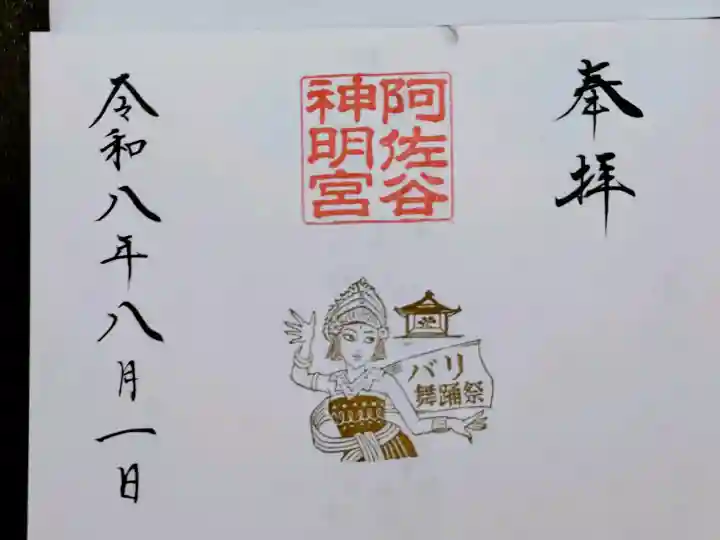 奉拝
阿佐谷
神明宮
バリ
舞踊祭
令和八年八月一日